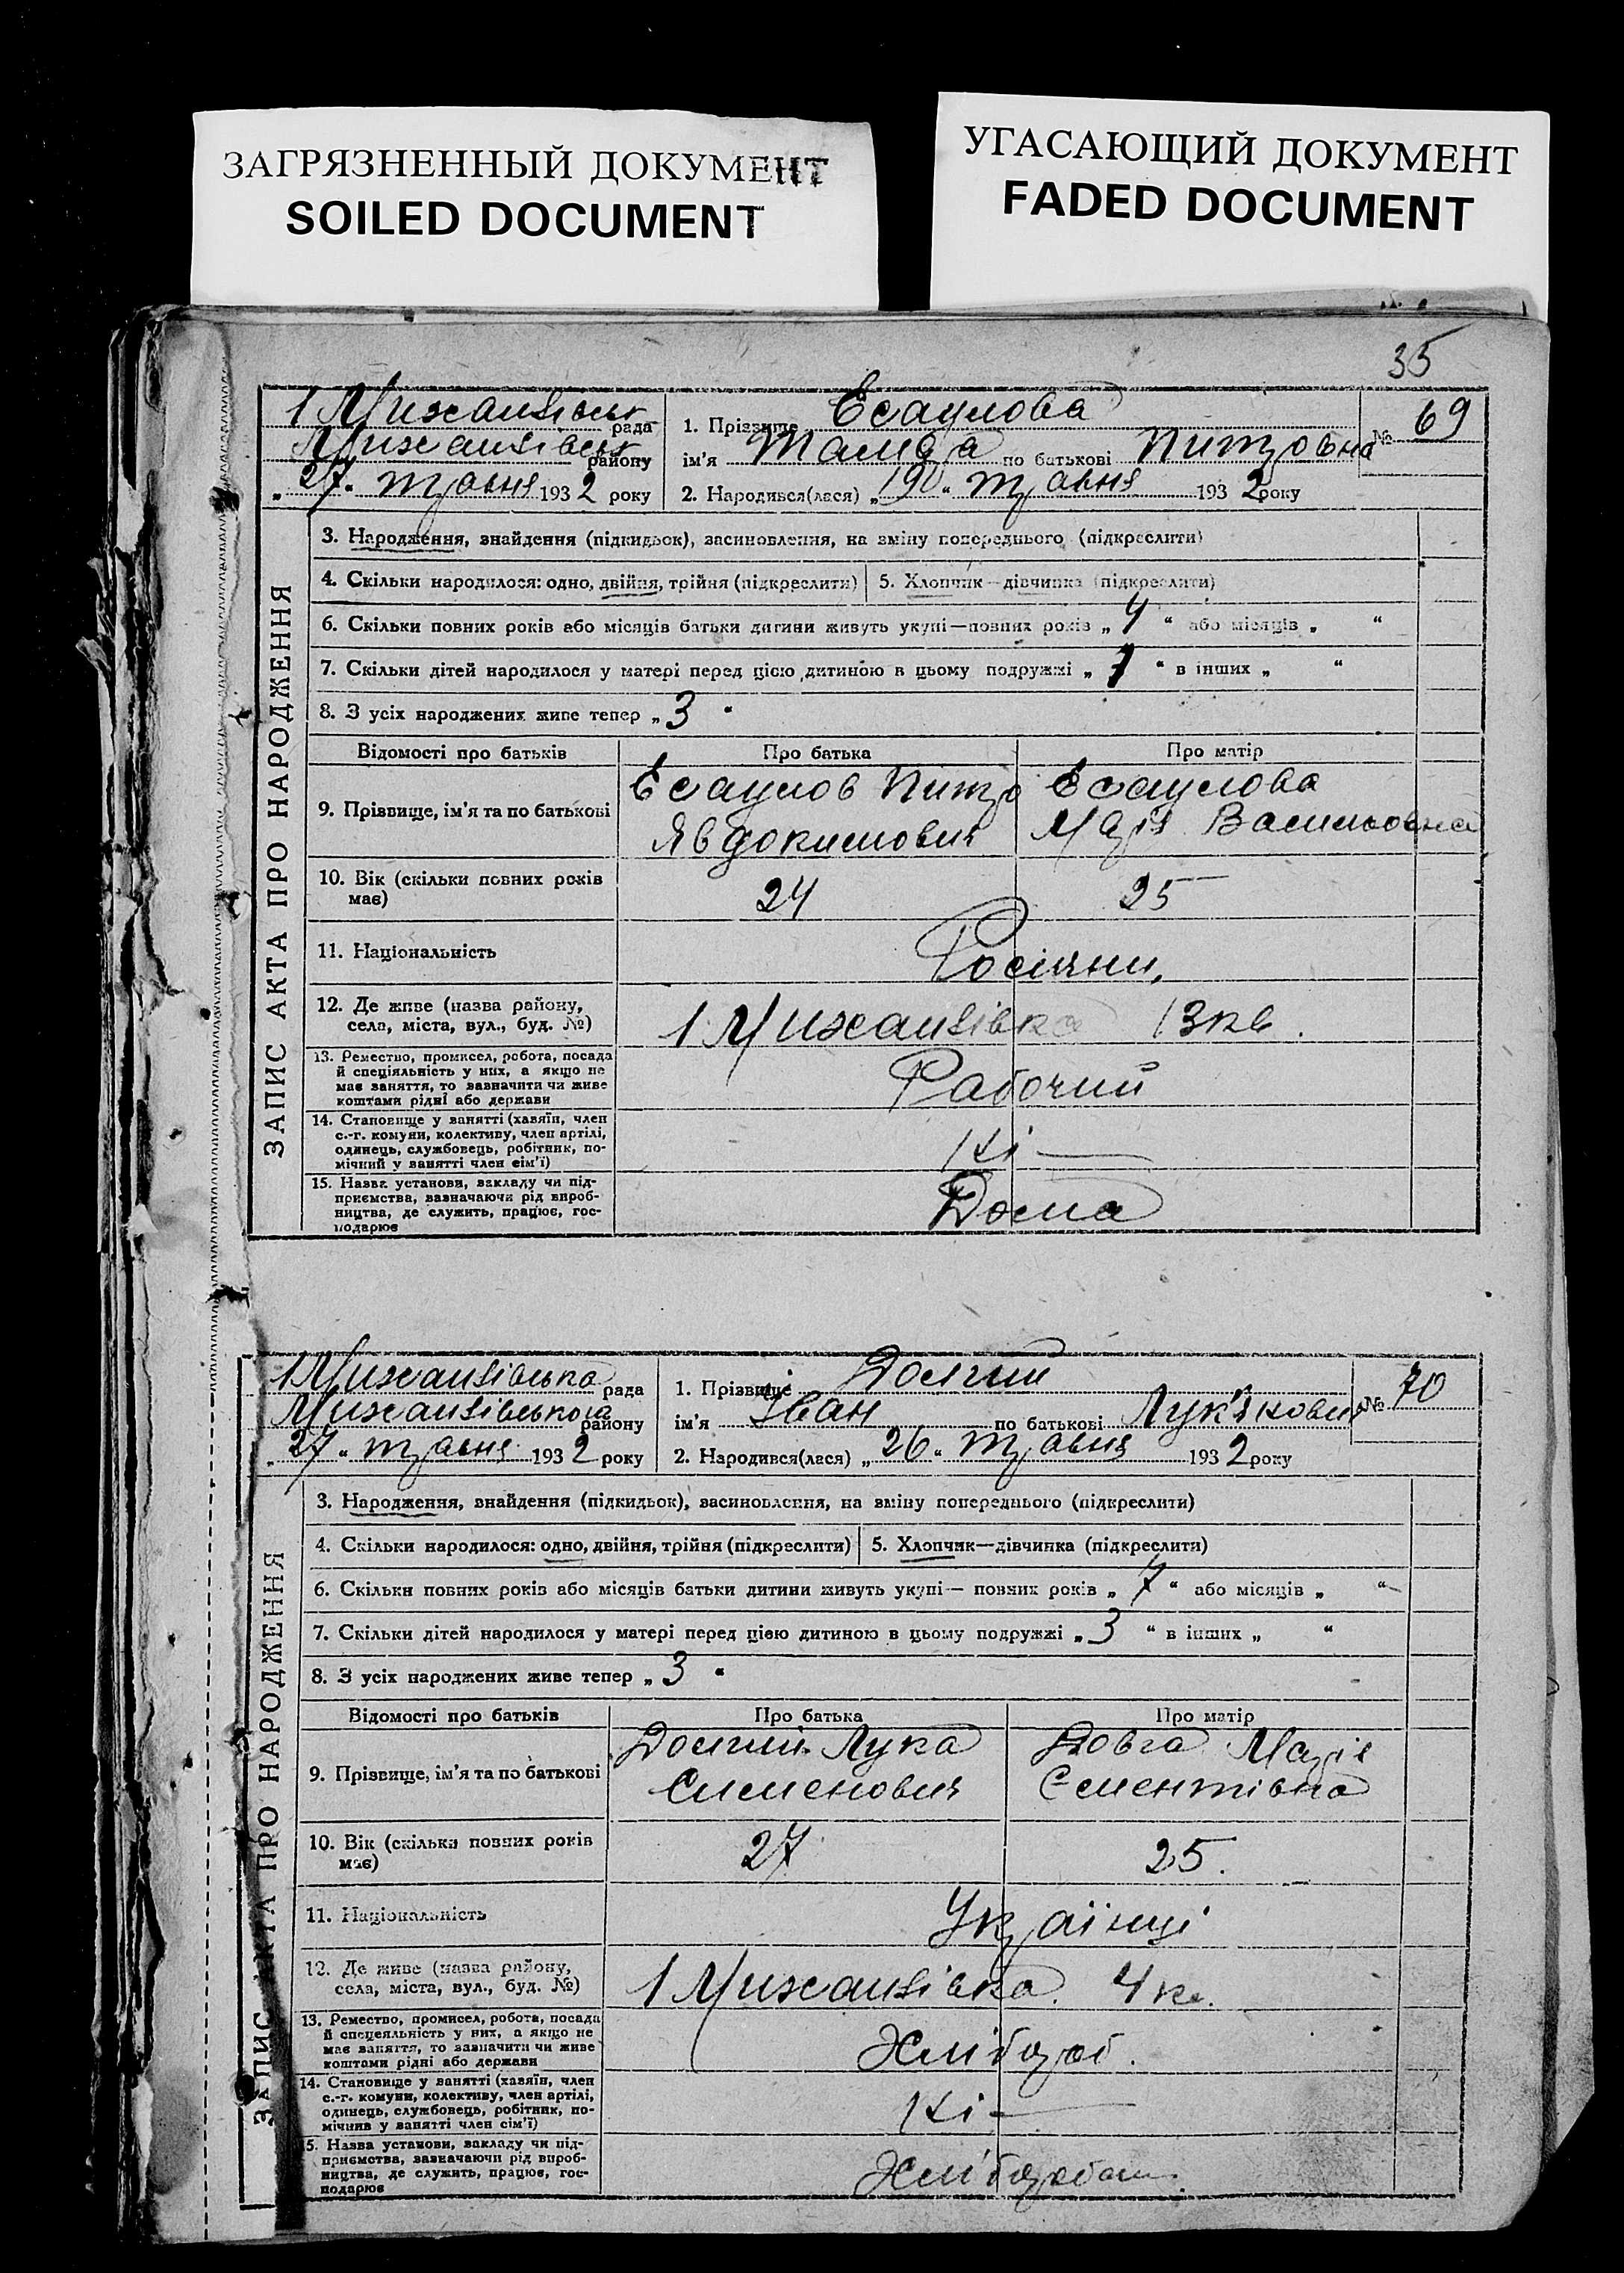 ЗАГРЯЗНЕННЫЙ ДОКУМЕНТ
SOILED DOCUMENT
УГАСАЮЩИЙ ДОКУМЕНТ
FADED DOCUMENT
35
ЗАПИС АКТА ПРО НАРОДЖЕННЯ
1 Михайлівськ рада
Михайлівськ району
„27" травня 1932 року
1. Прізвище Есаулова
ім'я по батькові Питровна
2. Народився(лася) „19" травня 1932 року
№ 69
3. Народження, знайдення (підкидьок), засиновлення, на зміну попереднього (підкреслити)
4. Скільки народилося: одно, двійня, трійня (підкреслити) 5. Хлопчик—дівчинка (підкреслити)
6. Скільки повних років або місяців батьки дитини живуть укупі—повних років „4" або місяців „ "
7. Скільки дітей народилося у матері перед цією дитиною в цьому подружжі „1" в інших „ "
8. З усіх народжених живе тепер „3"
Відомості про батьків Про батька Про матір
9. Прізвище, ім'я та по батькові
Есаулов Питро
Явдокимович
Есаулова
Марія Васильовна
10. Вік (скільки повних років
має)
24 25
11. Національність Росіяни,
12. Де живе (назва району,
села, міста, вул., буд. №)
1 Михайлівка 13 кв.
13. Ремество, промисел, робота, посада
й спеціяльність у них, а якщо не
має заняття, то зазначити чи живе
коштами рідні або держави
Рабочий
14. Становище у занятті (хазяїн, член
с.-г. комуни, колективу, член артілі,
одинець, службовець, робітник, по-
мічний у занятті член сім'ї)
Ні
15. Назва установи, закладу чи під-
приємства, зазначаючи рід вироб-
ництва, де служить, працює, гос-
подарює
Дома
ЗАПИС АКТА ПРО НАРОДЖЕННЯ
1 Михайлівська рада
Михайлівського району
„27" травня 1932 року
1. Прізвище Долгий
ім'я Іван по батькові Лук'янович
2. Народився(лася) „26" травня 1932 року
№ 70
3. Народження, знайдення (підкидьок), засиновлення, на зміну попереднього (підкреслити)
4. Скільки народилося: одно, двійня, трійня (підкреслити) 5. Хлопчик—дівчинка (підкреслити)
6. Скільки повних років або місяців батьки дитини живуть укупі— повних років „7" або місяців „ "
7. Скільки дітей народилося у матері перед цією дитиною в цьому подружжі „3" в інших „ "
8. З усіх народжених живе тепер „3"
Відомості про батьків Про батька Про матір
9. Прізвище, ім'я та по батькові
Долгий Лука
Сименович
Довга Марія
Сментівна
10. Вік (скільки повних років
має)
27 25.
11. Національність Українці
12. Де живе (назва району,
села, міста, вул., буд. №)
1 Михайлівка. 4 кв.
13. Ремество, промисел, робота, посада
й спецеяльність у них, а якщо не
має заняття, то зазначити чи живе
коштами рідні або держави
Хлібороб.
14. Становище у занятті (хазяїн, член
с.-г. комуни, колективу, член артілі,
одинець, службовець, робітник, по-
мічнив у занятті член сім'ї)
Ні
15. Назва установи, закладу чи під-
приємства, зазначаючи рід вироб-
ництва, де служить, працює, гос-
подарює